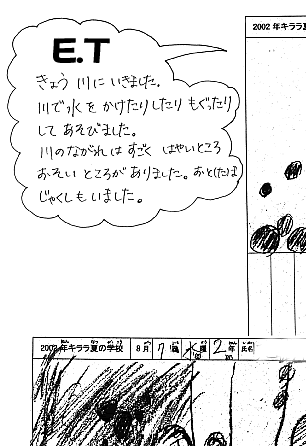 E.T
きょう 川に いきました。
川で水を かけたりしたり もぐったり
して あそびました。
川のながれは すごく はやいところ
おそい ところが ありました。おと(た)ま
じゃくしも いました。
2002 年キララ夏
2002 年キララ夏の学校 8月 7日 水曜 2年 氏名